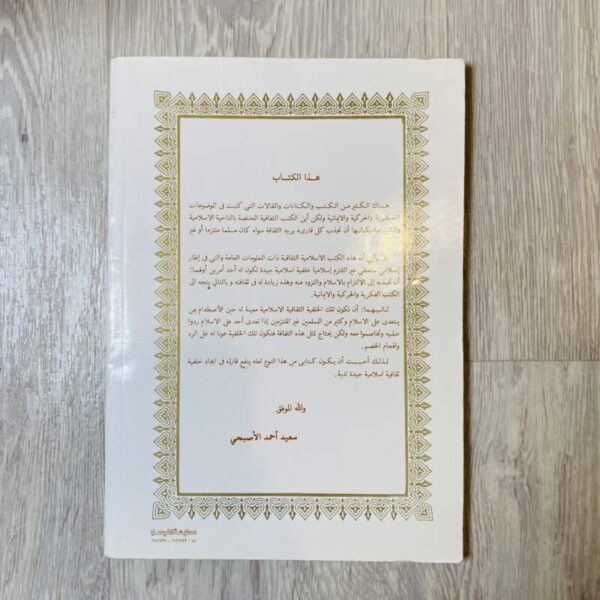 هذا الكتاب
هناك الكثير من الكتب والكتابات والمقالات التي كتبت في الموضوعات
الفكرية والحركية والايمانية ولكن أين الكتب الثقافية المختصة بالناحية الاسلامية
والتي بامكانها أن تجذب كل قارىء يريد الثقافة سواء كان مسلما ملتزما أو غير
رأيي أن هذه الكتب الاسلامية الثقافية ذات المعلومات العامة والتي في إطار
إسلامي ستعطي غير الملتزم إسلاميا خلفية اسلامية جيدة تكون له أحد أمرين أولهما:
أن تجذبه إلى الالتزام بالاسلام والتزود منه وهذه زيادة له في ثقافته و بالتالي يتجه الى
الكتب الفكرية والحركية والايمانية.
ثانيهما: أن تكون تلك الخلفية الثقافية الاسلامية معينة له حين الأصطدام بمن
يتعدى على الاسلام وكثير من المسلمين غير الملتزمين إذا تعدى أحد على الاسلام ردوا
عليه وتخاصموا معه ولكن يحتاج لمثل هذه الثقافة فتكون تلك الخلفية عونا له على الرد
وإفحام الخصم.
لذلك أحببت أن يكون كتابي من هذا النوع لعله ينفع قارئه في ايجاد خلفية
ثقافية اسلامية جيدة لديه.
والله الموفق
سعيد أحمد الأصبحي